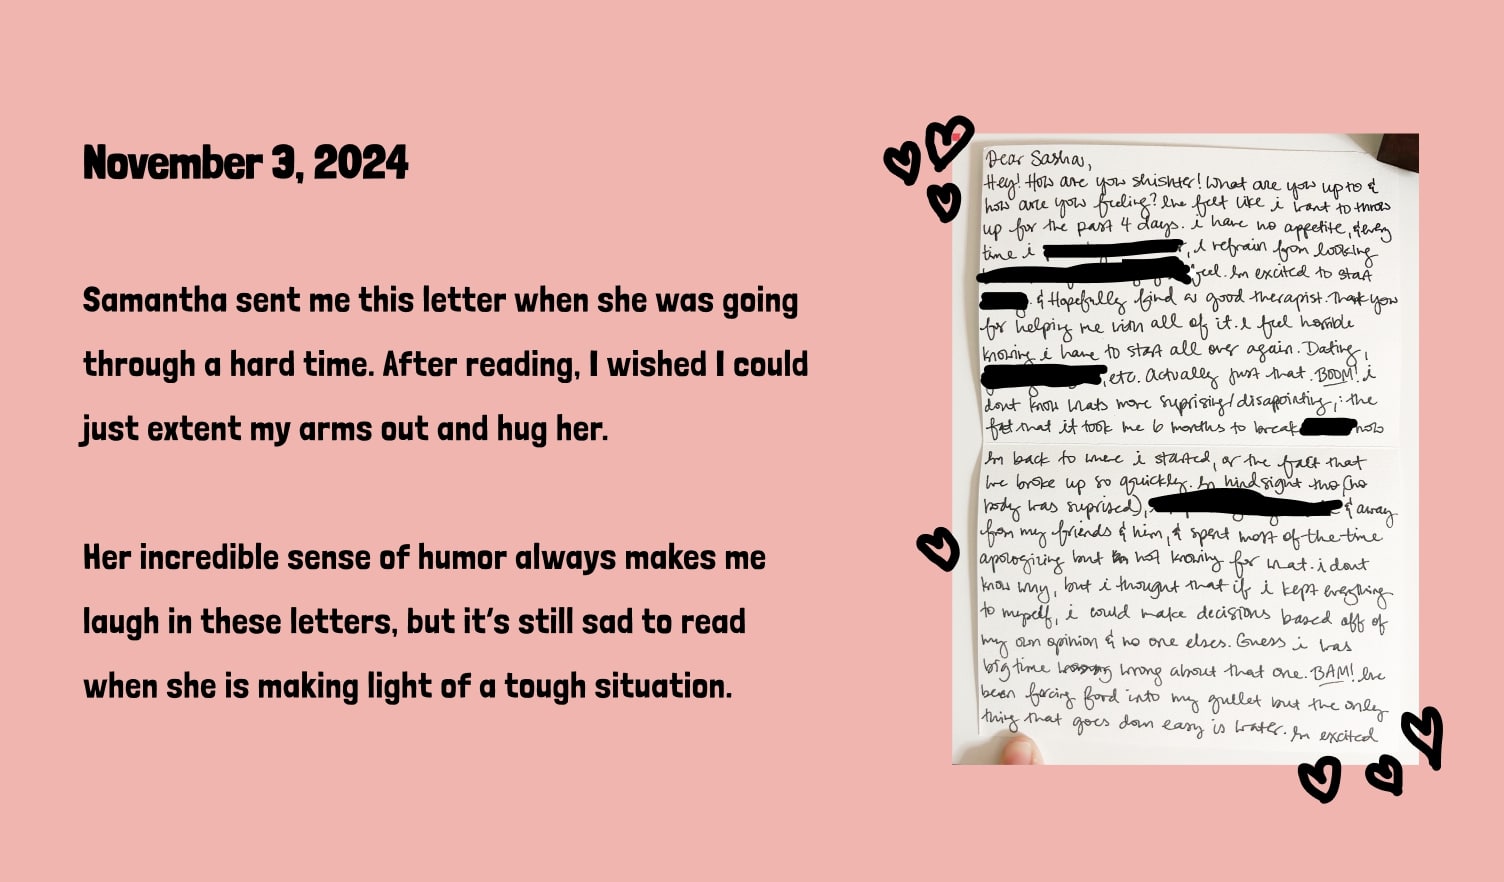 November 3, 2024
Samantha sent me this letter when she was going
through a hard time. After reading, I wished I could
just extent my arms out and hug her.
Her incredible sense of humor always makes me
laugh in these letters, but it's still sad to read
when she is making light of a tough situation.
Dear Sasha,
Hey! How are you shishter! What are you up to &
how are you feeling? Ive felt like i want to throw
up for the past 4 days. i have no appetite, & every
time i , i refrain from looking
feel. Im excited to start
& Hopefully find a good therapist. Thank you
for helping me with all of it. I feel horrible
knowing i have to start all over again. Dating,
, etc. Actually just that. BOOM! i
dont know whats more suprising/disapointing,: the
fact that it took me 6 months to break now
Im back to where i started, or the fact that
we broke up so quickly. In hindsight tho (no
body was suprised), & away
from my friends & him, & spent most of the time
apologizing but not knowing for what. i dont
know why, but i thought that if i kept everything
to myself, i could make decisions based off of
my own opinion & no one elses. Guess i was
big time wrong about that one. BAM! Ive
been forcing food into my gullet but the only
thing that goes down easy is water. Im excited